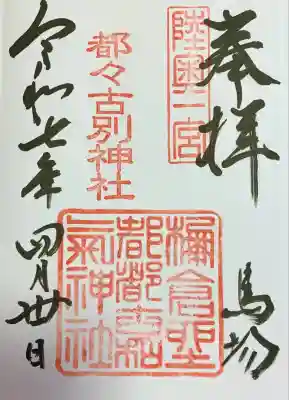 奉拝
馬場
陸奥一宮
都々古別神社
棚倉坐
都都古和
氣神社
令和七年四月卅日